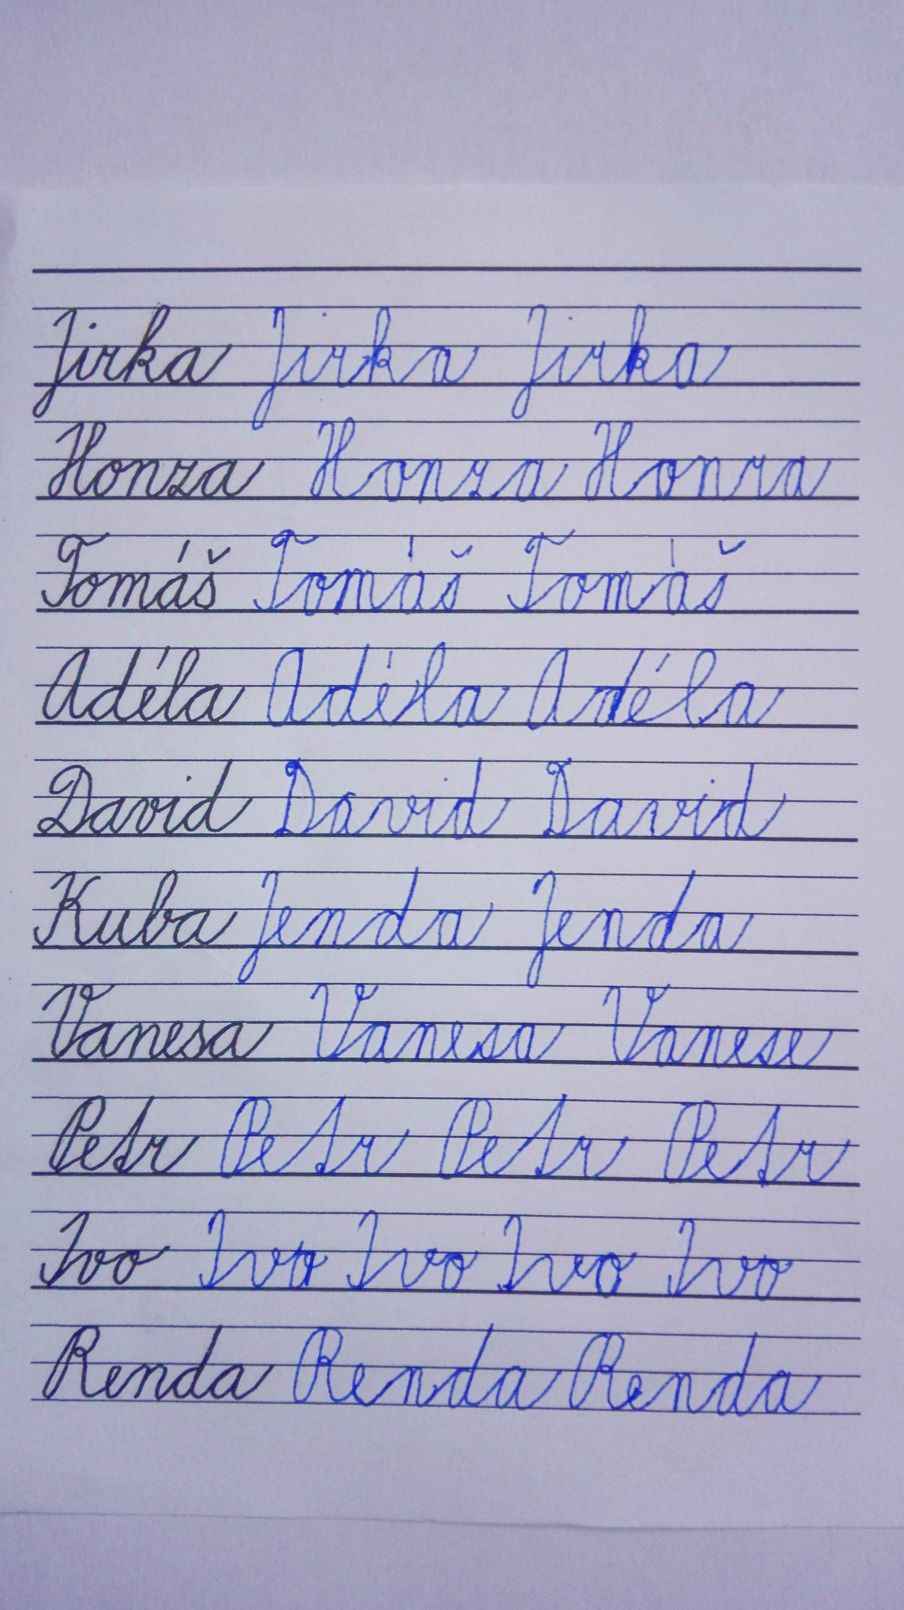 Jirka Jirka Jirka
Honza Honza Honza
Tomáš Tomáš Tomáš
Adéla Adéla Adéla
David David David
Kuba Jenda Jenda
Vanesa Vanesa Vanese
Petr Petr Petr Petr
Ivo Ivo Ivo Ivo Ivo
Renda Renda Renda